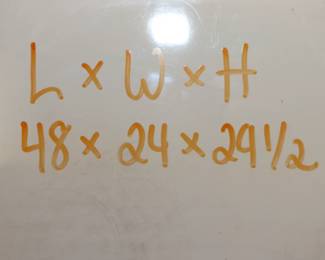 L x W x H
48 x 24 x 29 1/2